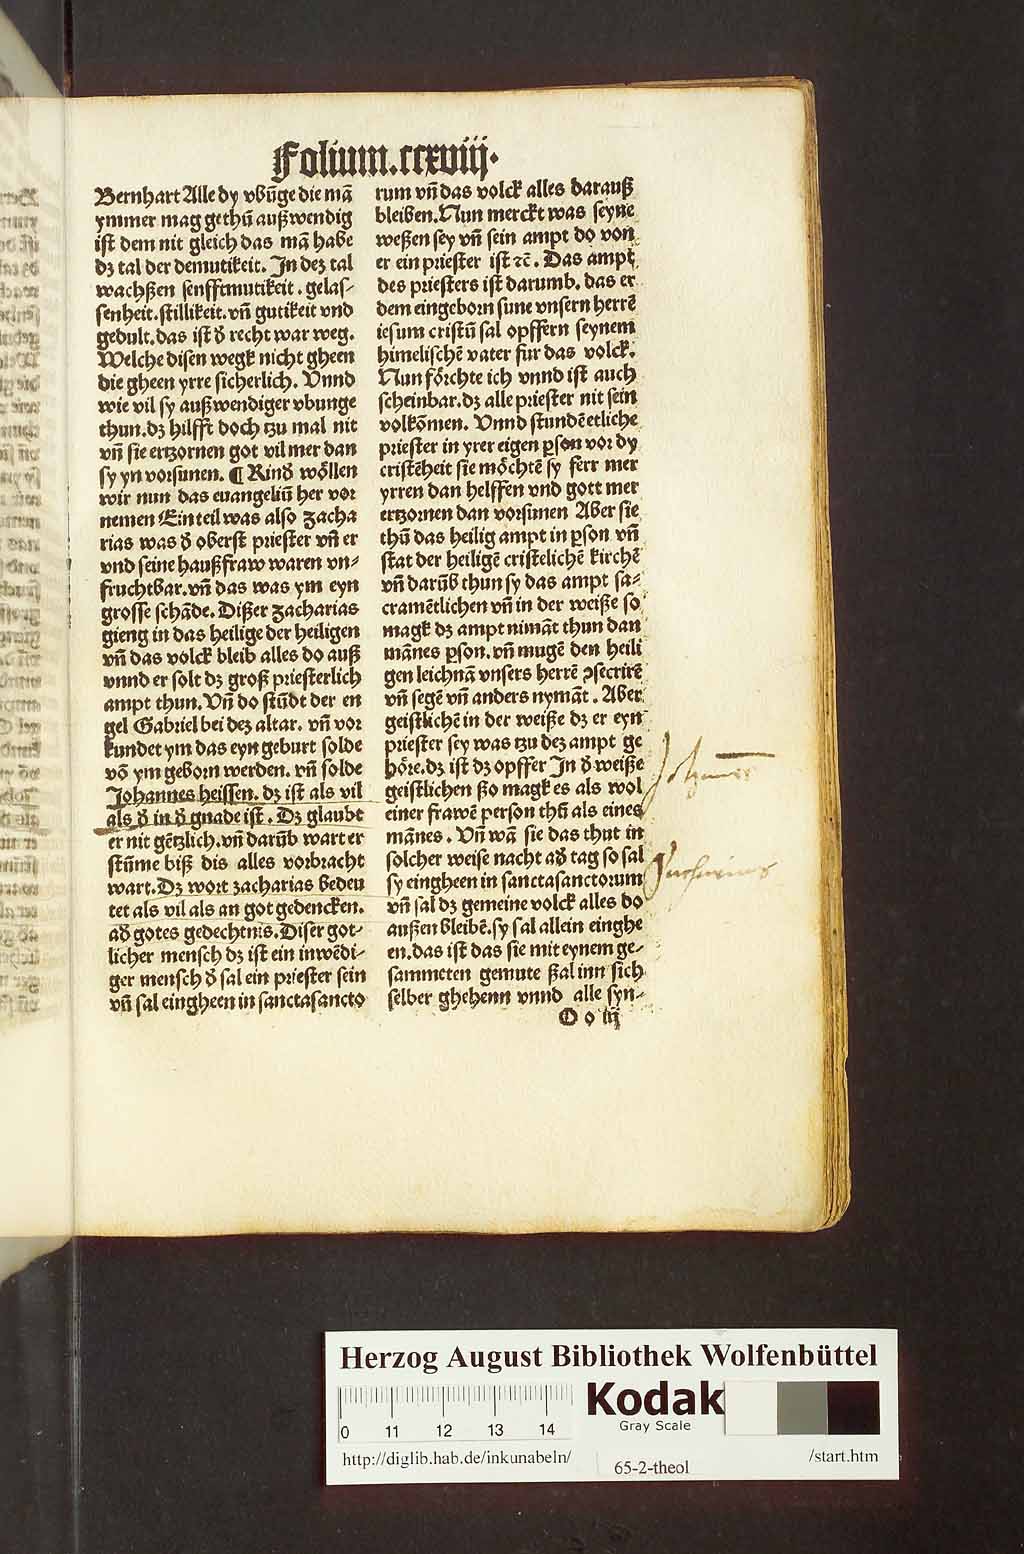 Folium.ccxviij.
Bernhart Alle dy vbūge die mā
ymmer mag gethū außwendig
ist dem nit gleich das mā habe
dʒ tal der demutikeit. In deʒ tal
wachßen senfftmutikeit. gelas-
senheit. stillikeit. vn̄ gutikeit vnd
gedult. das ist d̄ recht war weg.
Welche disen wegk nicht gheen
die gheen yrre sicherlich. Vnnd
wie vil sy außwendiger vbunge
thun. dʒ hilfft doch tzu mal nit
vn̄ sie ertzornen got vil mer dan
sy yn vorsunen. ¶ Kind̄ wöllen
wir nun das euangeliū her vor
nemen Ein teil was also zacha
rias was d̄ oberst priester vn̄ er
vnd seine haußfraw waren vn-
fruchtbar. vn̄ das was ym eyn
grosse schāde. Dißer zacharias
gieng in das heilige der heiligen
vn̄ das volck bleib alles do auß
vnnd er solt dʒ groß priesterlich
ampt thun. Vn̄ do stūdt der en
gel Gabriel bei deʒ altar. vn̄ vor
kundet ym das eyn geburt solde
vō ym geborn werden. vn̄ solde
Johannes heissen. dʒ ist als vil
als d̄ in d̄ gnade ist. Dʒ glaubt
er nit gētzlich. vn̄ darūb wart er
stūme biß dis alles vorbracht
wart. Dʒ wort zacharias bedeu
tet als vil als an got gedencken.
ad̄ gotes gedechtnis. Diser got-
licher mensch dʒ ist ein inwēdi-
ger mensch d̄ sal ein priester sein
vn̄ sal eingheen in sanctasancto
rum vn̄ das volck alles darauß
bleiben. Nun merckt was seyne
weßen sey vn̄ sein ampt do von
er ein priester ist ⁊c̄. Das ampt
des priesters ist darumb. das er
dem eingeborn sune vnsern herrē
iesum cristū sal opffern seynem
himelischē vater fur das volck.
Nun förchte ich vnnd ist auch
scheinbar. dʒ alle priester nit sein
volkōmen. Vnnd stundē etliche
priester in yrer eigen ꝑson vor dy
cristēheit sie möchtē sy ferr mer
yrren dan helffen vnd gott mer
ertzornen dan vorsunen Aber sie
thū das heilig ampt in ꝑson vn̄
stat der heiligē cristelichē kirchē
vn̄ darūb thun sy das ampt sa-
cramētlichen vn̄ in der weiße so
magk dʒ ampt nimāt thun dan
mānes ꝑson. vn̄ mugē den heili
gen leichnā vnsers herrē ꝯsecrirē
vn̄ segē vn̄ anders nymāt. Aber
geistlichē in der weiße dʒ er eyn
priester sey was tzu deʒ ampt ge
höre. dʒ ist dʒ opffer In d̄ weiße
geistlichen ßo magk es als wol
einer frawē person thū als eines
mānes. Vn̄ wā sie das thut in
solcher weise nacht ad̄ tag so sal
sy eingheen in sanctasanctorum
vn̄ sal dʒ gemeine volck alles do
außen bleibē. sy sal allein einghe
en. das ist das sie mit eynem ge-
sammeten gemute ßal inn sich
selber ghehenn vnnd alle syn-
O o iij
Johannes
Zacharias
Herzog August Bibliothek Wolfenbüttel
0 11 12 13 14
Kodak
Gray Scale
http://diglib.hab.de/inkunabeln/
65-2-theol
/start.htm